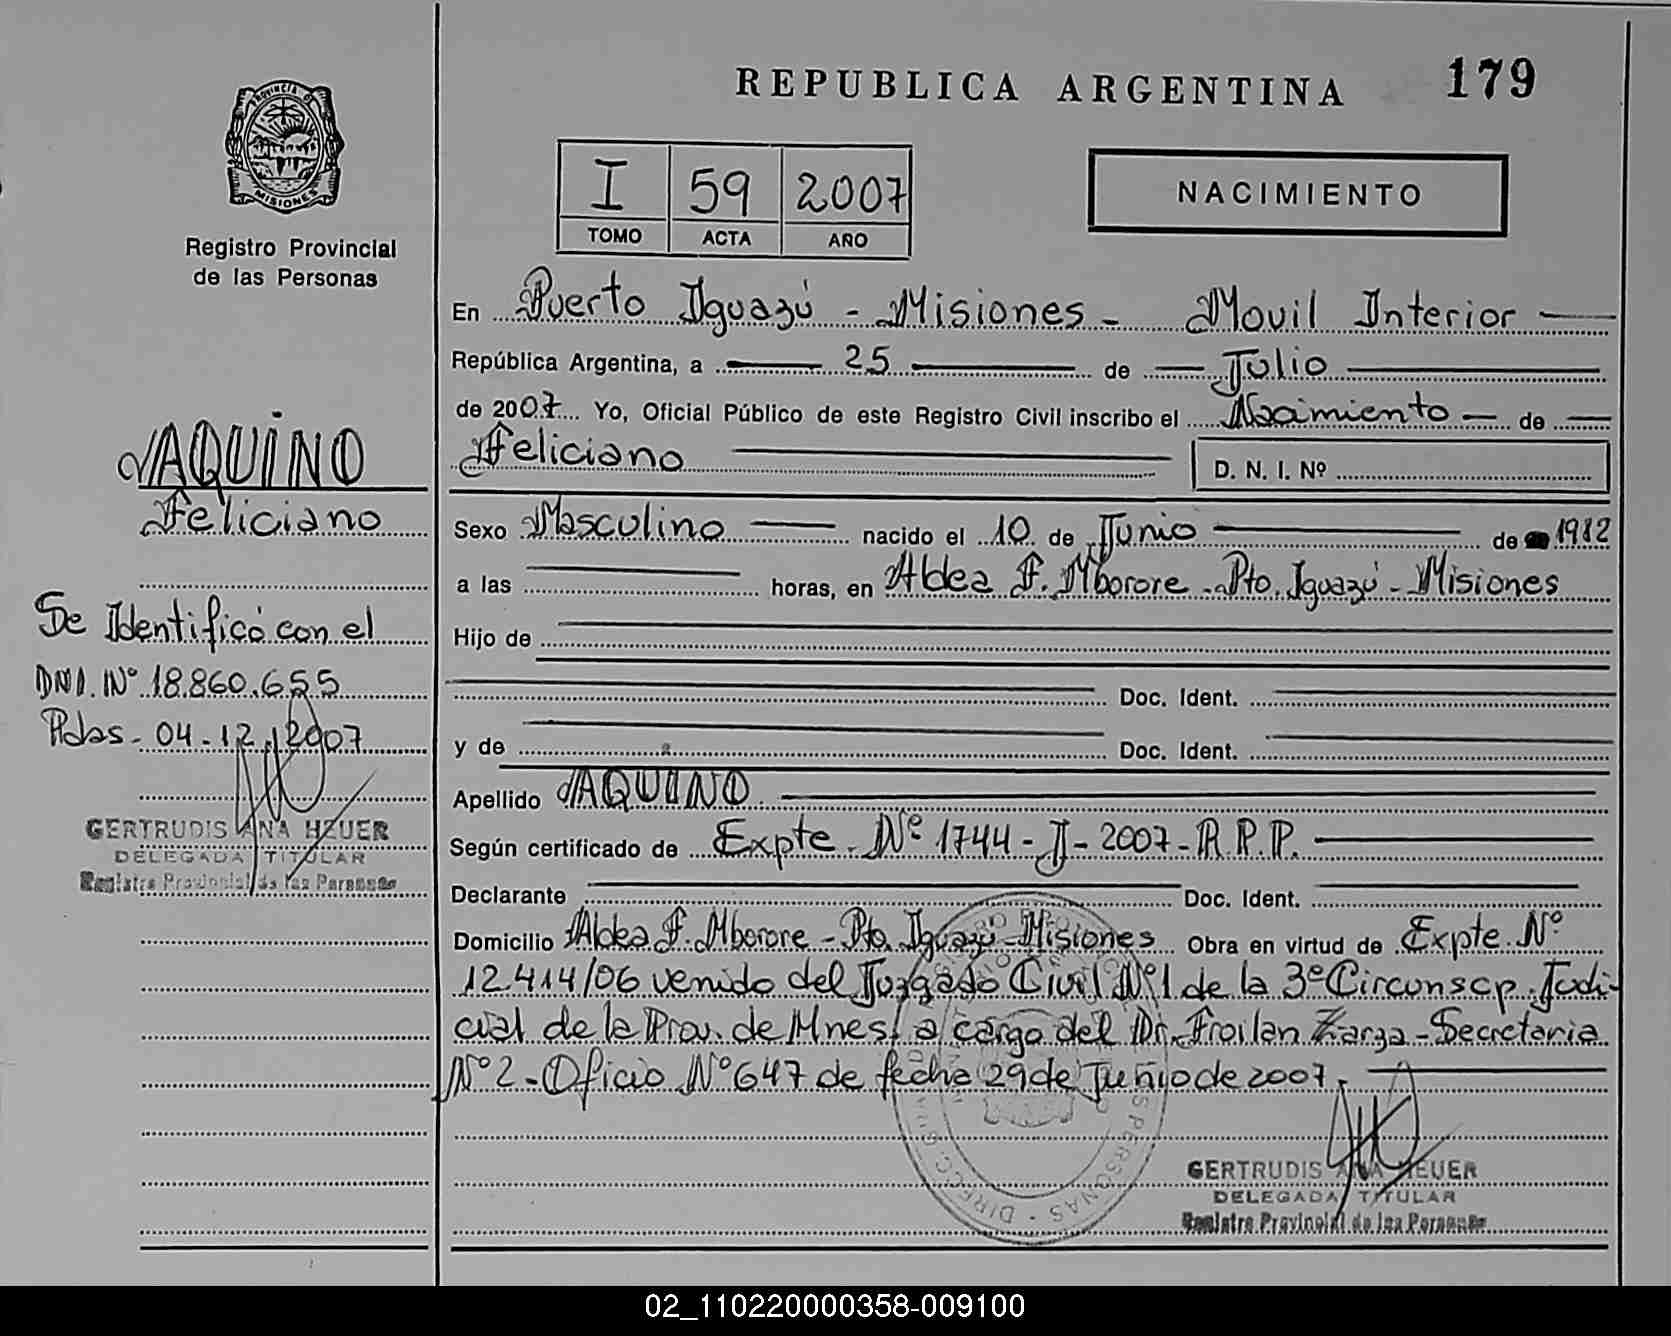 REPUBLICA ARGENTINA 179
PROVINCIA DE
MISIONES
Registro Provincial
de las Personas
I 59 2007
TOMO ACTA AÑO
NACIMIENTO
En Puerto Iguazú - Misiones - Movil Interior
República Argentina, a 25 de Julio
de 2007 Yo, Oficial Público de este Registro Civil inscribo el Nacimiento de
Feliciano D. N. I. Nº
Sexo Masculino nacido el 10 de Junio de 1982
a las horas, en Aldea F. Mborore - Pto. Iguazú - Misiones
Hijo de
Doc. Ident.
y de Doc. Ident.
Apellido AQUINO
Según certificado de Expte. Nº 1744 - J - 2007 - R.P.P.
Declarante Doc. Ident.
Domicilio Aldea F. Mborore - Pto. Iguazú - Misiones Obra en virtud de Expte. Nº
12.414/06 venido del Juzgado Civil Nº1 de la 3º Circunscp. Judi-
cial de la Prov. de Mnes, a cargo del Dr. Froilan Zarza - Secretaria
Nº2 - Oficio Nº 647 de fecha 29 de Junio de 2007.
GERTRUDIS ANA HEUER
DELEGADA TITULAR
Registro Provincial de las Personas
AQUINO
Feliciano
Se Identificó con el
DNI. Nº 18.860.655
Pdas - 04 - 12 - 2007
GERTRUDIS ANA HEUER
DELEGADA TITULAR
Registro Provincial de las Personas
02_110220000358-009100